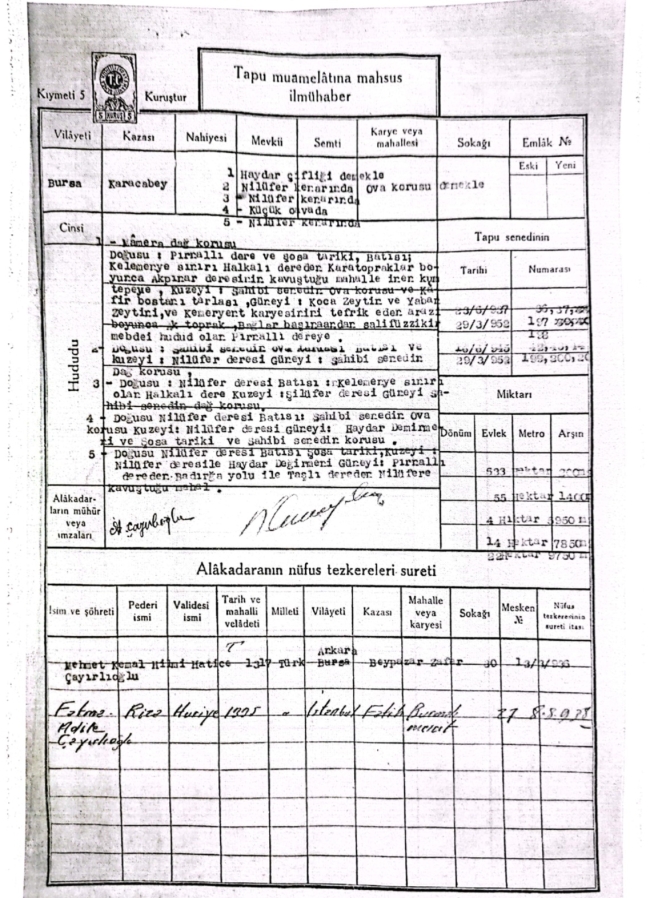 Tapu muamelâtına mahsus
ilmühaber
Kıymeti 5
T.C.
5 KURUŞ 5
Kuruştur
Vilâyeti
Kazası
Nahiyesi
Mevkii
Semti
Karye veya
mahallesi
Sokağı
Emlâk №
Eski
Yeni
Bursa
Karacabey
1 Haydar çifliği demekle
2 Nilüfer kenarında ova korusu demekle
3 - Nilüfer kenarında
4 - Küçük ovada
5 - Nilüfer kenarında
Cinsi
1 - Kâmera dağ korusu
Tapu senedinin
Hududu
Doğusu : Pırnallı dere ve şosa tariki, Batısı;
Kelemerye sınırı Halkalı dereden Karatopraklar bo-
yunca Akpınar deresinin kavuştuğu mahalle inen kum
tepeye , Kuzeyi : Sahibi senedin Ova korusu ve
fir bostanı tarlası ,Güneyi : Koca Zeytin ve Yaban
Zeytini,ve Kemeryent karyesini tefrik eden arazi
boyunca Ak toprak ,Bağlar başınaandan salifüzzikir
mebdei hudud olan Pırnallı dereye .
Tarihi
Numarası
23/6/937
29/3/952 197
2- Doğusu : Sahibi senedin ova korusu Batısı ve
kuzeyi : Nilüfer deresi Güneyi : Sahibi senedin
Dağ korusu .
29/3/952 199,200,20
3 - Doğusu : Nilüfer deresi Batısı : Kelemerye sınırı
olan Halkalı dere Kuzeyi :Nilüfer deresi Güneyi Sa-
hibi senedin dağ korusu.
Miktarı
4 - Doğusu Nilüfer deresi Batısı: Sahibi senedin Ova
korusu Kuzeyi: Nilüfer deresi Güneyi: Haydar Demirme
ri ve Şosa tariki ve Sahibi senedin korusu .
Dönüm
Evlek
Metro
Arşın
5 - Doğusu Nilüfer deresi Batısı Şosa tariki,Kuzeyi :
Nilüfer deresile Haydar Değirmeni Güneyi: Pırnallı
dereden Badırga yolu ile Taşlı dereden Nilüfere
kavuştuğu mahal .
533 Hektar
55 Hektar 1400
4 Hektar 5950 m
14 Hektar 7850
Hektar 9750 m
Alâkadar-
ların mühür
veya
imzaları
Alâkadaranın nüfus tezkereleri sureti
İsim ve şöhreti
Pederi
ismi
Validesi
ismi
Tarih ve
mahalli
velâdeti
Milleti
Vilâyeti
Kazası
Mahalle
veya
karyesi
Sokağı
Mesken
№
Nüfus
tezkeresinin
sureti itası
Ankara
Mehmet Kemal Hilmi Hatice 1317 Türk Bursa Beypazar Zafer 30
Çayırlıoğlu
Fatma Rıza Huriye İstanbul Fatih 27
Adile
Çayırlıoğlu